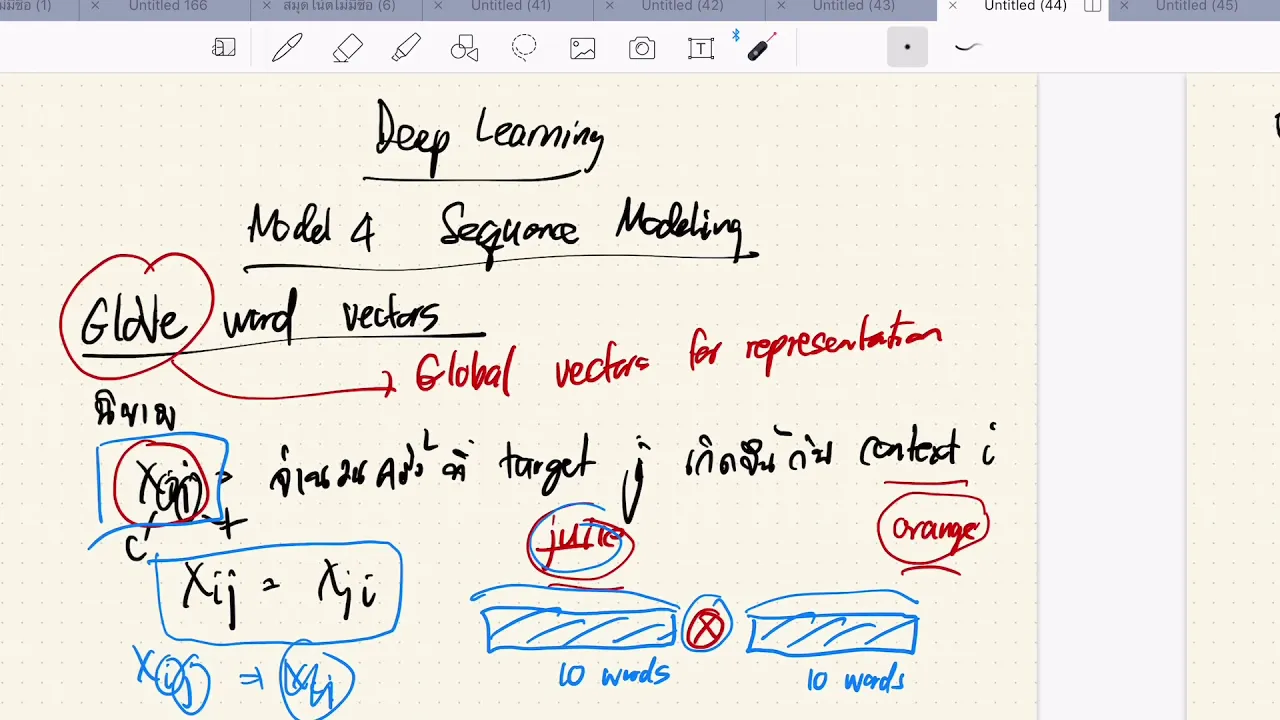 ม่มีชื่อ (1) × Untitled 166 × สมุดโน้ตไม่มีชื่อ (6) × Untitled (41) × Untitled (42) × Untitled (43) × Untitled (44) × Untitled (45)
Deep Learning
Model 4 Sequence Modeling
GloVe word vectors
Global vectors for representation
นิยาม
Xij = จำนวนครั้งที่ target j เกิดขึ้นกับ context i
c t
juice orange
Xij = Xji
10 words 10 words
Xij ⇒